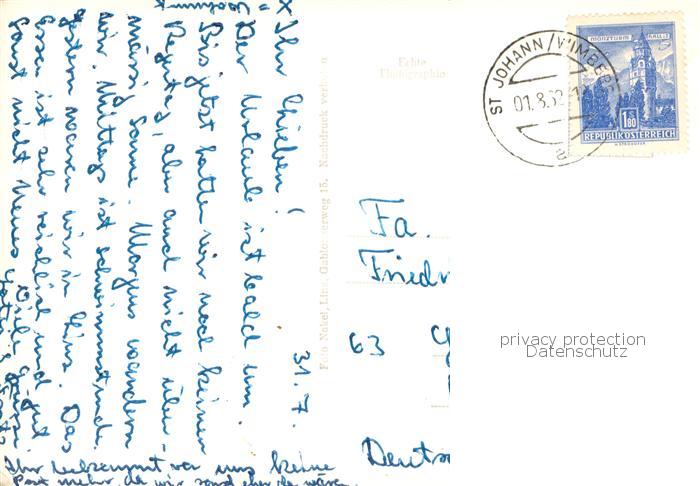 31. 7.
Ihr Lieben!
Der Urlaub ist bald um.
Bis jetzt hatten wir noch keinen
Regentag, aber auch nicht über-
mässig Sonne. Morgens wandern
wir. Mittags ist schwimmstunde.
Gestern waren wir in Linz. Das
Essen ist sehr reichlich und gut
sonst nicht Neues
Viele
Ihr bekommt von uns keine
Post mehr, da wir sonst eher da wären.
Echte
Photographie
Foto Nakel, Linz, Gablonzerweg 15. Nachdruck verboten
ST JOHANN/WIMBERG
01.8.62
a
MÜNZTURM HALL I.
1.80
REPUBLIK ÖSTERREICH
Fa.
Friedr
63
Deuts
privacy protection
Datenschutz